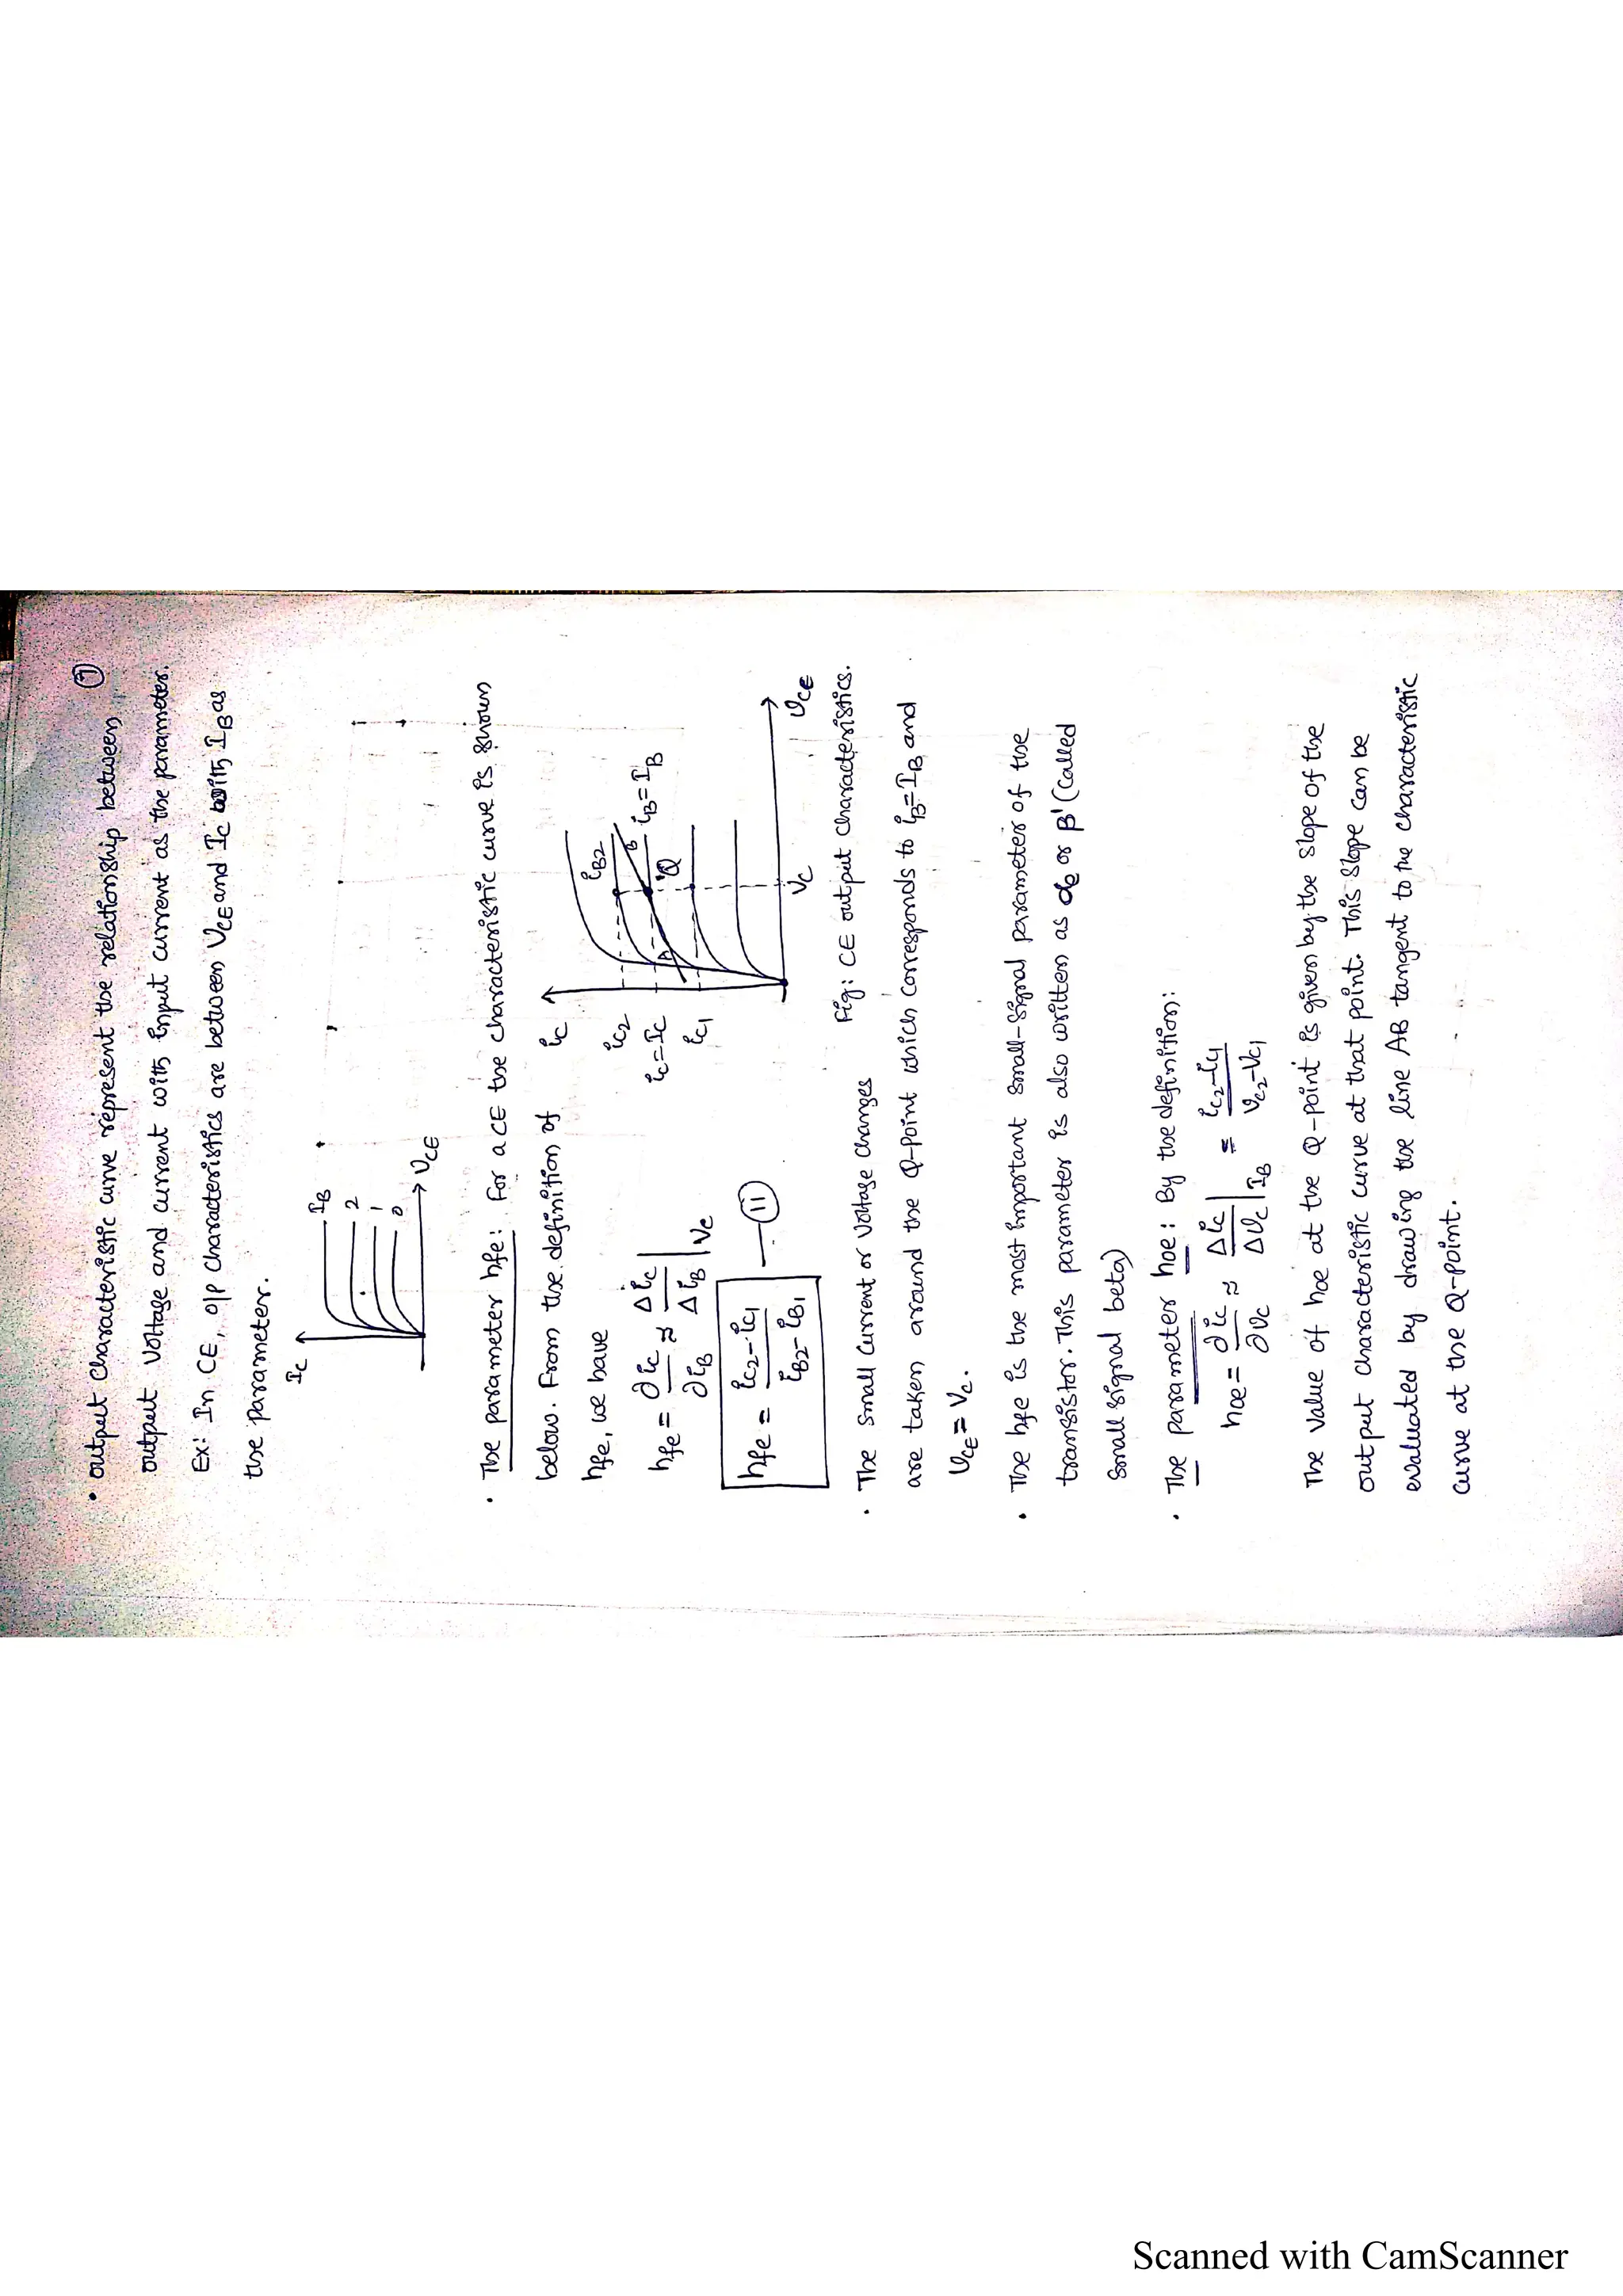 ⑦
• output characteristic curve represent the relationship between
output voltage and current with input current as the parameter.
Ex: In CE, o/p characteristics are between VCE and Ic with IB as
the parameter.
Ic
IB
2
1
0
VCE
• The parameter hfe: For a CE the characteristic curve is shown
below. From the definition of
hfe, we have
hfe = ∂ic/∂iB ≈ Δic/ΔiB | Vc
hfe = (ic2 - ic1)/(iB2 - iB1) — ⑪
ic
ic2
ic = Ic
ic1
iB2
B
iB = IB
Q
A
Vc
VCE
Fig: CE output characteristics.
• The small current or voltage changes
are taken around the Q-point which corresponds to iB = IB and
VCE = Vc.
• The hfe is the most important small-signal parameter of the
transistor. This parameter is also written as αe or β' (called
small signal beta)
• The parameter hoe: By the definition:
hoe = ∂ic/∂vc ≈ Δic/Δvc | IB = (ic2 - ic1)/(vc2 - vc1)
The value of hoe at the Q-point is given by the slope of the
output characteristic curve at that point. This slope can be
evaluated by drawing the line AB tangent to the characteristic
curve at the Q-point.
Scanned with CamScanner